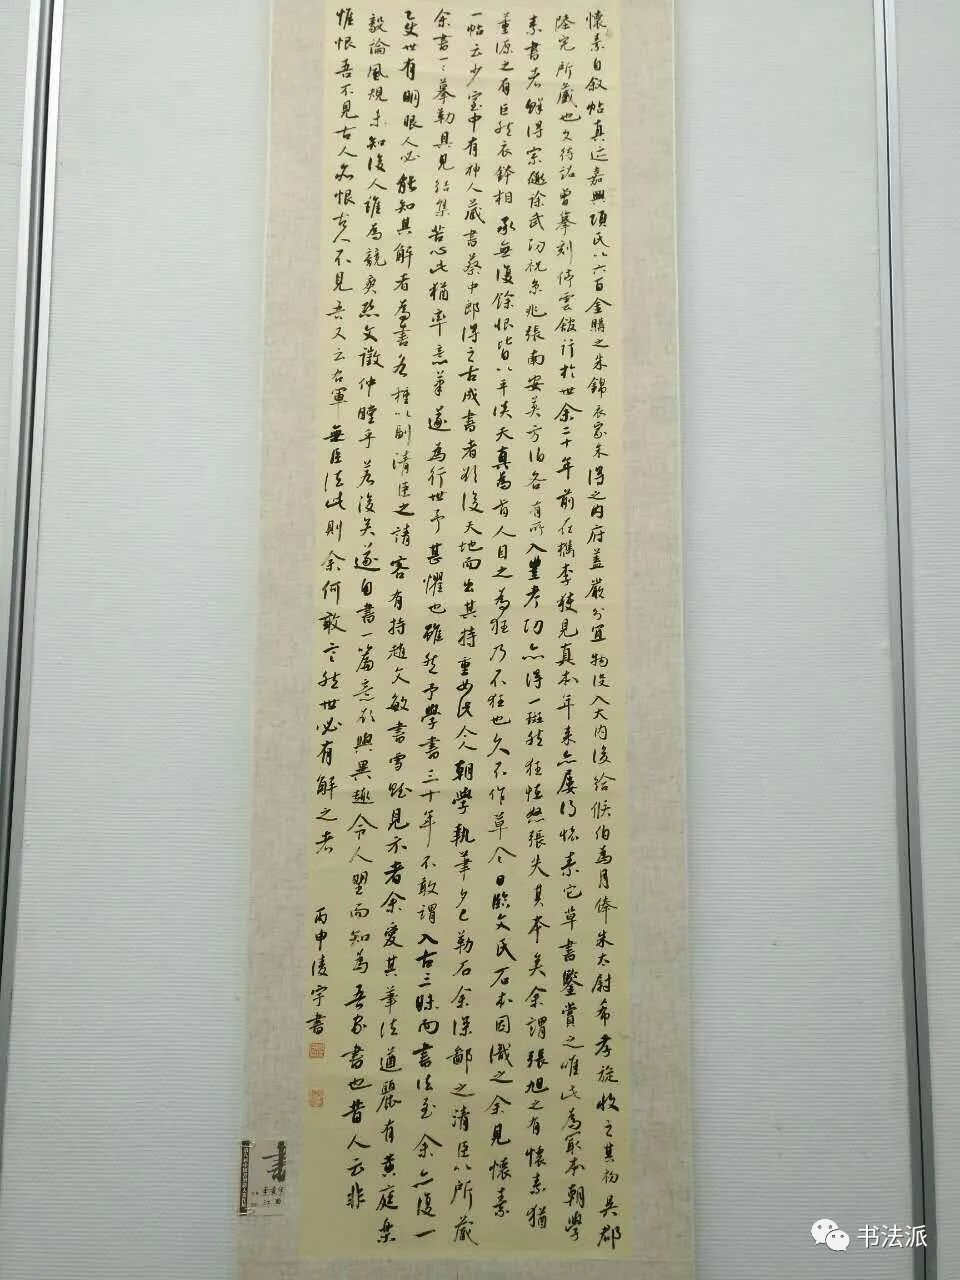 懷素自敘帖真迹嘉興項氏以六百金購之朱錦衣家朱得之內府蓋嚴分宜物沒入大內後給侯伯為月俸朱太尉希孝旋收之其初吳郡
陸完所藏也文待詔曾摹刻停雲館行於世余二十年前在檇李獲見真本年來亦屢得懷素它草書鑒賞之唯此為最本朝學
素書者鮮得宗趣徐武功祝京兆張南安莫方伯各有所入豐考功亦得一斑然狂怪怒張失其本矣余謂張旭之有懷素猶
董源之有巨然衣鉢相承無復餘恨皆以平淡天真為旨人目之為狂乃不狂也久不作草今日臨文氏石本因識之余見懷素
一帖云少室中有神人藏書蔡中郎得之古成書者欲後天地而出其持重如此今人朝學執筆夕已勒石余深鄙之清臣以所藏
余書一一摹勒具見結集苦心此猶率意筆遂為行世予甚懼也雖然予學書三十年不敢謂入古三昧而書法至余亦復一
變世有明眼人必能知其解者為書各種以副清臣之請客有持趙文敏書雪賦見示者余愛其筆法遒麗有黃庭樂
毅論風規未知後人誰為競爽恐文徵仲瞠乎若後矣遂自書一篇意欲與異趣令人望而知為吾家書也昔人云非
惟恨吾不見古人亦恨古人不見吾又云右軍無臣法此則余何敢言然世必有解之者
丙申凌宇書
書法派